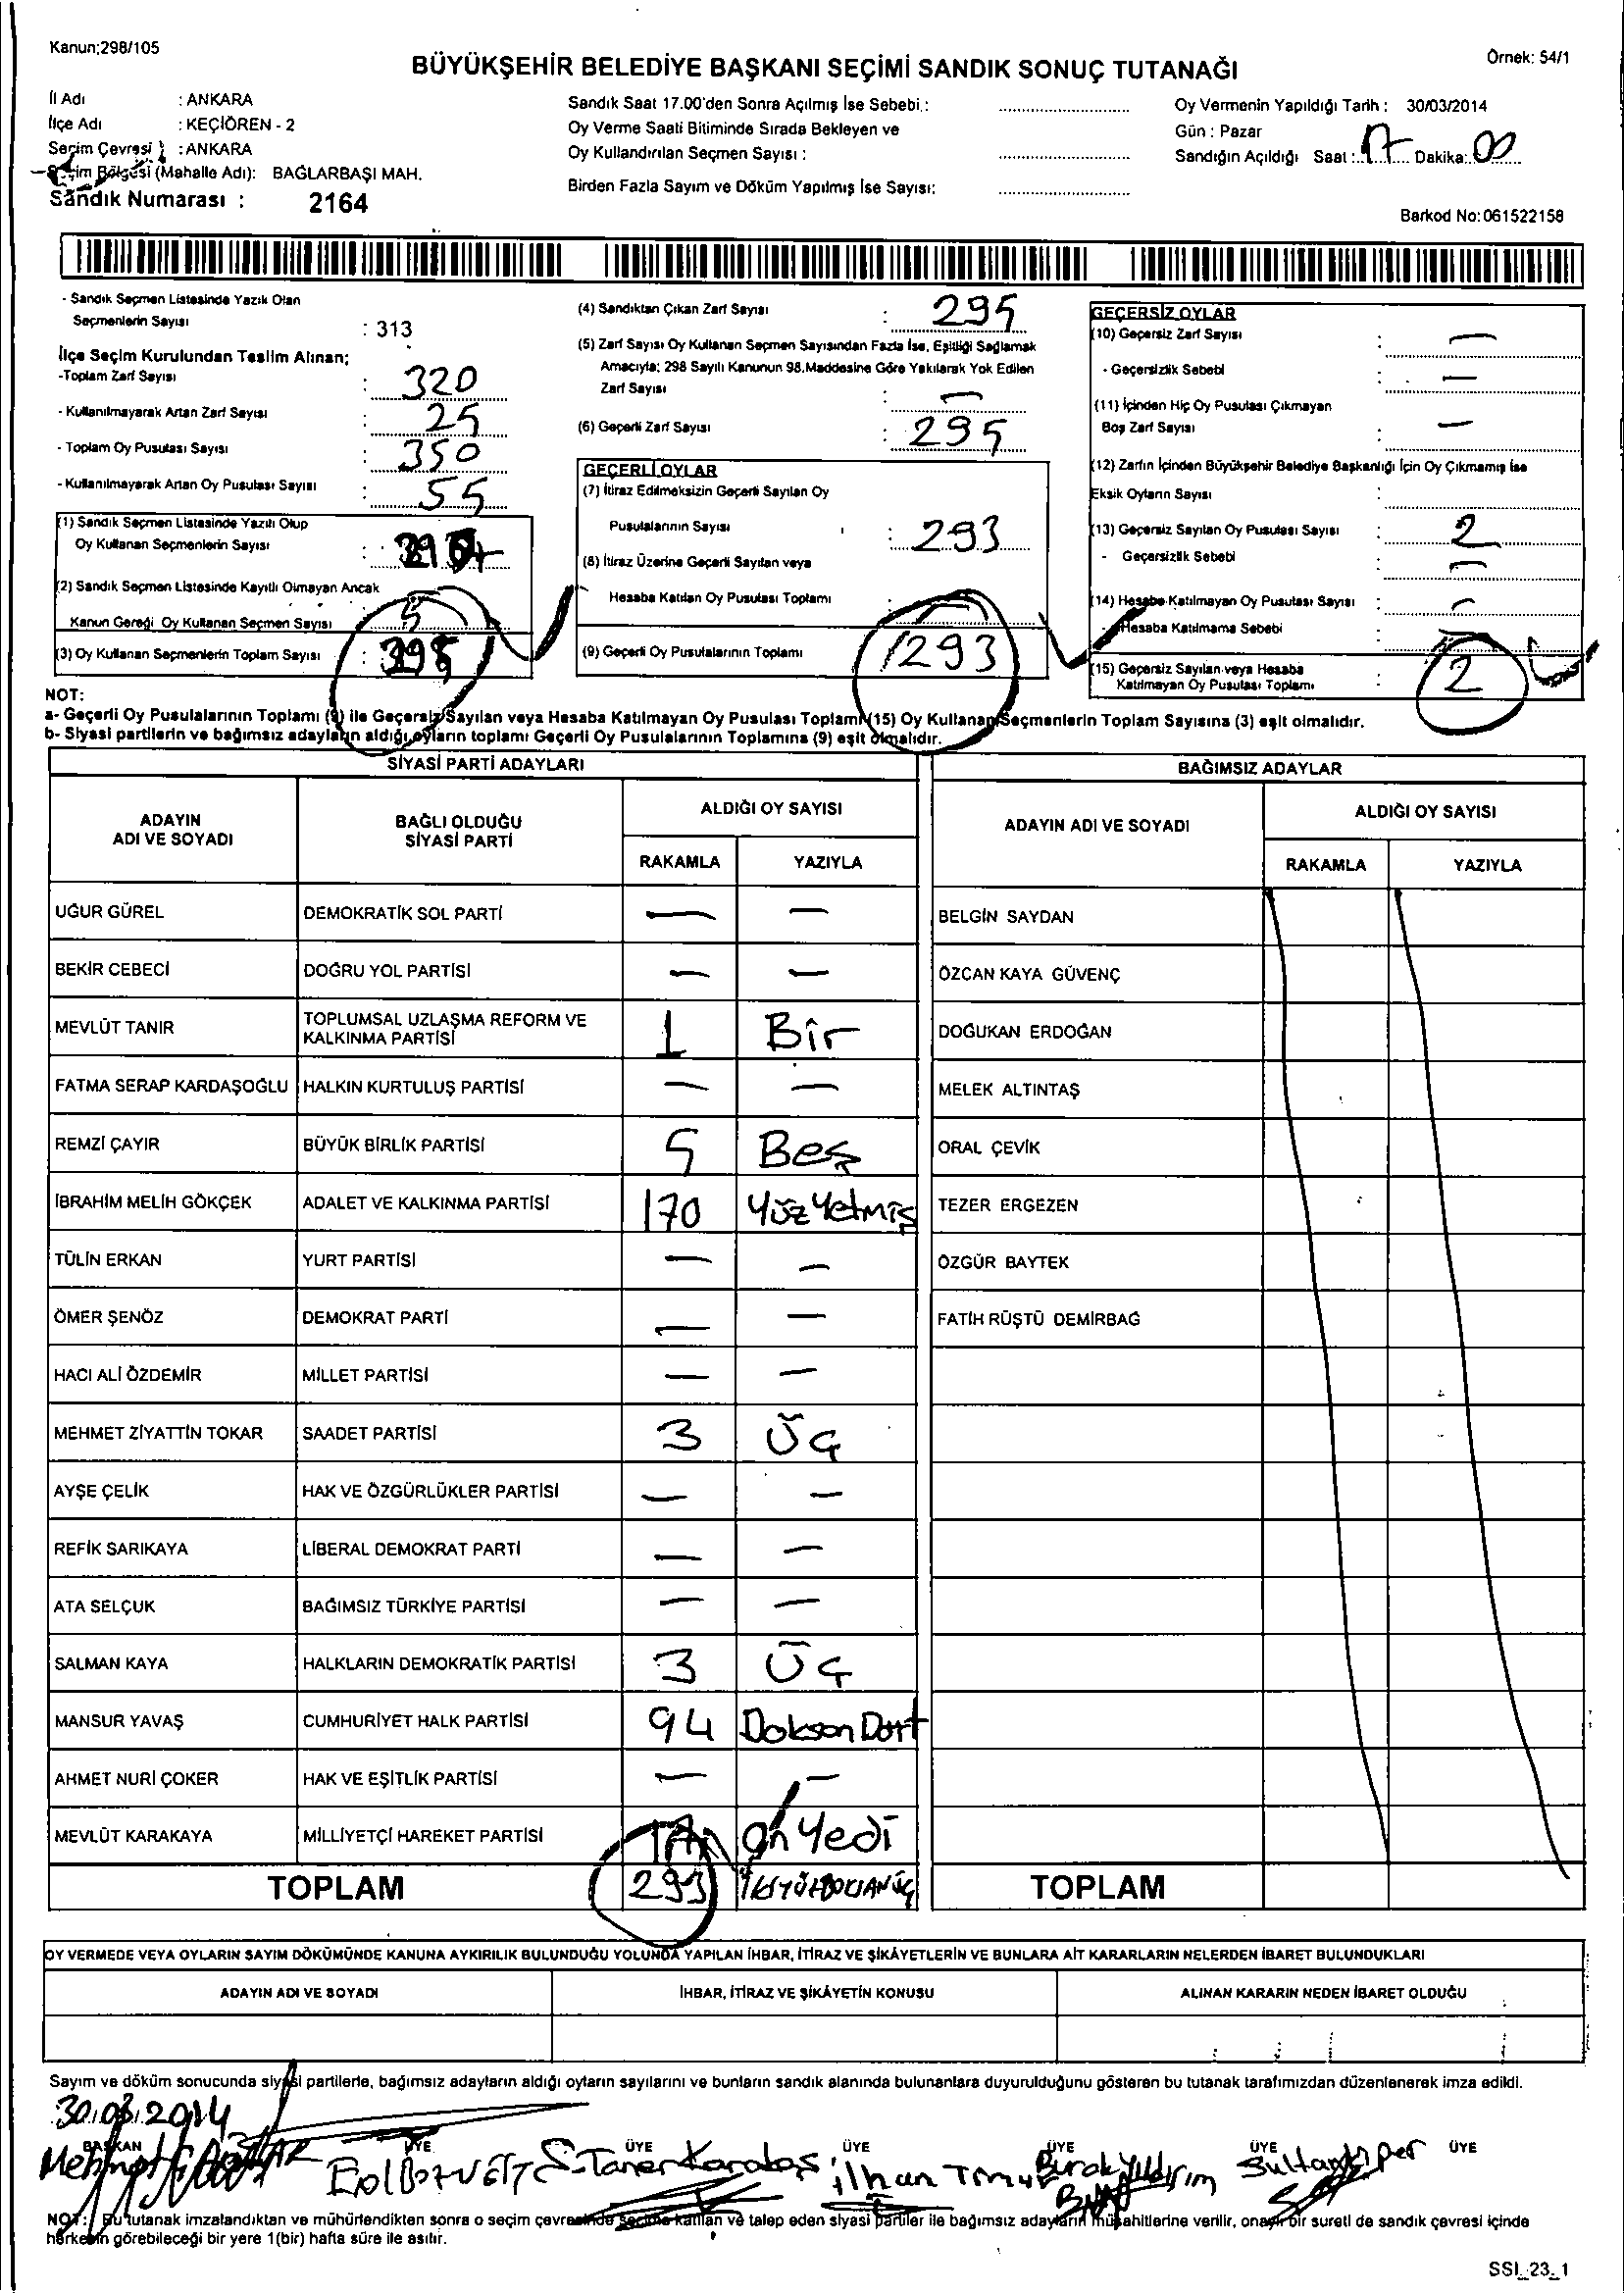 Kanun;298/105
Örnek: 54/1
BÜYÜKŞEHİR BELEDİYE BAŞKANI SEÇİMİ SANDIK SONUÇ TUTANAĞI
İl Adı : ANKARA
İlçe Adı : KEÇİÖREN - 2
Seçim Çevresi : ANKARA
Seçim Bölgesi (Mahalle Adı): BAĞLARBAŞI MAH.
Sandık Numarası : 2164
Sandık Saat 17.00'den Sonra Açılmış İse Sebebi.:
Oy Verme Saati Bitiminde Sırada Bekleyen ve
Oy Kullandırılan Seçmen Sayısı :
Birden Fazla Sayım ve Döküm Yapılmış İse Sayısı:
Oy Vermenin Yapıldığı Tarih : 30/03/2014
Gün : Pazar
Sandığın Açıldığı Saat : 17 Dakika: 00
Barkod No: 061522158
- Sandık Seçmen Listesinde Yazılı Olan
Seçmenlerin Sayısı : 313
İlçe Seçim Kurulundan Teslim Alınan;
-Toplam Zarf Sayısı : 320
- Kullanılmayarak Artan Zarf Sayısı : 25
- Toplam Oy Pusulası Sayısı : 350
- Kullanılmayarak Artan Oy Pusulası Sayısı : 55
(1) Sandık Seçmen Listesinde Yazılı Olup
Oy Kullanan Seçmenlerin Sayısı :
(2) Sandık Seçmen Listesinde Kayıtlı Olmayan Ancak
Kanun Gereği Oy Kullanan Seçmen Sayısı
(3) Oy Kullanan Seçmenlerin Toplam Sayısı :
(4) Sandıktan Çıkan Zarf Sayısı : 295
(5) Zarf Sayısı Oy Kullanan Seçmen Sayısından Fazla İse, Eşitliği Sağlamak
Amacıyla; 298 Sayılı Kanunun 98.Maddesine Göre Yakılarak Yok Edilen
Zarf Sayısı : —
(6) Geçerli Zarf Sayısı : 295
GEÇERLİ OYLAR
(7) İtiraz Edilmeksizin Geçerli Sayılan Oy
Pusulalarının Sayısı : 293
(8) İtiraz Üzerine Geçerli Sayılan veya
Hesaba Katılan Oy Pusulası Toplamı : —
(9) Geçerli Oy Pusulalarının Toplamı 293
GEÇERSİZ OYLAR
(10) Geçersiz Zarf Sayısı : —
- Geçersizlik Sebebi : —
(11) İçinden Hiç Oy Pusulası Çıkmayan
Boş Zarf Sayısı : —
(12) Zarfın İçinden Büyükşehir Belediye Başkanlığı İçin Oy Çıkmamış İse
Eksik Oyların Sayısı :
(13) Geçersiz Sayılan Oy Pusulası Sayısı : 2
- Geçersizlik Sebebi : —
(14) Hesaba Katılmayan Oy Pusulası Sayısı : —
- Hesaba Katılmama Sebebi : —
(15) Geçersiz Sayılan veya Hesaba
Katılmayan Oy Pusulası Toplamı : 2
NOT:
a- Geçerli Oy Pusulalarının Toplamı (9) ile Geçersiz Sayılan veya Hesaba Katılmayan Oy Pusulası Toplamı (15) Oy Kullanan Seçmenlerin Toplam Sayısına (3) eşit olmalıdır.
b- Siyasi partilerin ve bağımsız adayların aldığı oyların toplamı Geçerli Oy Pusulalarının Toplamına (9) eşit olmalıdır.
SİYASİ PARTİ ADAYLARI
ADAYIN ADI VE SOYADI BAĞLI OLDUĞU SİYASİ PARTİ ALDIĞI OY SAYISI
RAKAMLA YAZIYLA
UĞUR GÜREL DEMOKRATİK SOL PARTİ — —
BEKİR CEBECİ DOĞRU YOL PARTİSİ — —
MEVLÜT TANIR TOPLUMSAL UZLAŞMA REFORM VE KALKINMA PARTİSİ 1 Bir
FATMA SERAP KARDAŞOĞLU HALKIN KURTULUŞ PARTİSİ — —
REMZİ ÇAYIR BÜYÜK BİRLİK PARTİSİ 5 Beş
İBRAHİM MELİH GÖKÇEK ADALET VE KALKINMA PARTİSİ 170 Yüz Yetmiş
TÜLİN ERKAN YURT PARTİSİ — —
ÖMER ŞENÖZ DEMOKRAT PARTİ — —
HACI ALİ ÖZDEMİR MİLLET PARTİSİ — —
MEHMET ZİYATTİN TOKAR SAADET PARTİSİ 3 Üç
AYŞE ÇELİK HAK VE ÖZGÜRLÜKLER PARTİSİ — —
REFİK SARIKAYA LİBERAL DEMOKRAT PARTİ — —
ATA SELÇUK BAĞIMSIZ TÜRKİYE PARTİSİ — —
SALMAN KAYA HALKLARIN DEMOKRATİK PARTİSİ 3 Üç
MANSUR YAVAŞ CUMHURİYET HALK PARTİSİ 94 Doksan Dört
AHMET NURİ ÇOKER HAK VE EŞİTLİK PARTİSİ — —
MEVLÜT KARAKAYA MİLLİYETÇİ HAREKET PARTİSİ 17 On Yedi
TOPLAM 293 İKİYÜZDOKSANÜÇ
BAĞIMSIZ ADAYLAR
ADAYIN ADI VE SOYADI ALDIĞI OY SAYISI
RAKAMLA YAZIYLA
BELGİN SAYDAN
ÖZCAN KAYA GÜVENÇ
DOĞUKAN ERDOĞAN
MELEK ALTINTAŞ
ORAL ÇEVİK
TEZER ERGEZEN
ÖZGÜR BAYTEK
FATİH RÜŞTÜ DEMİRBAĞ
TOPLAM
OY VERMEDE VEYA OYLARIN SAYIM DÖKÜMÜNDE KANUNA AYKIRILIK BULUNDUĞU YOLUNDA YAPILAN İHBAR, İTİRAZ VE ŞİKÂYETLERİN VE BUNLARA AİT KARARLARIN NELERDEN İBARET BULUNDUKLARI
ADAYIN ADI VE SOYADI İHBAR, İTİRAZ VE ŞİKÂYETİN KONUSU ALINAN KARARIN NEDEN İBARET OLDUĞU
Sayım ve döküm sonucunda siyasi partilerle, bağımsız adayların aldığı oyların sayılarını ve bunların sandık alanında bulunanlara duyurulduğunu gösteren bu tutanak tarafımızdan düzenlenerek imza edildi.
30.03.2014
BAŞKAN ÜYE ÜYE ÜYE ÜYE ÜYE ÜYE
Mehmet S. Taner Karabaş İlhan Burak Yıldırım Sultan
NOT: Bu tutanak imzalandıktan ve mühürlendikten sonra o seçim çevresinde seçime katılan ve talep eden siyasi partiler ile bağımsız adayların müşahitlerine verilir, onaylı bir sureti de sandık çevresi içinde
herkesin görebileceği bir yere 1(bir) hafta süre ile asılır.
SSI_23_1